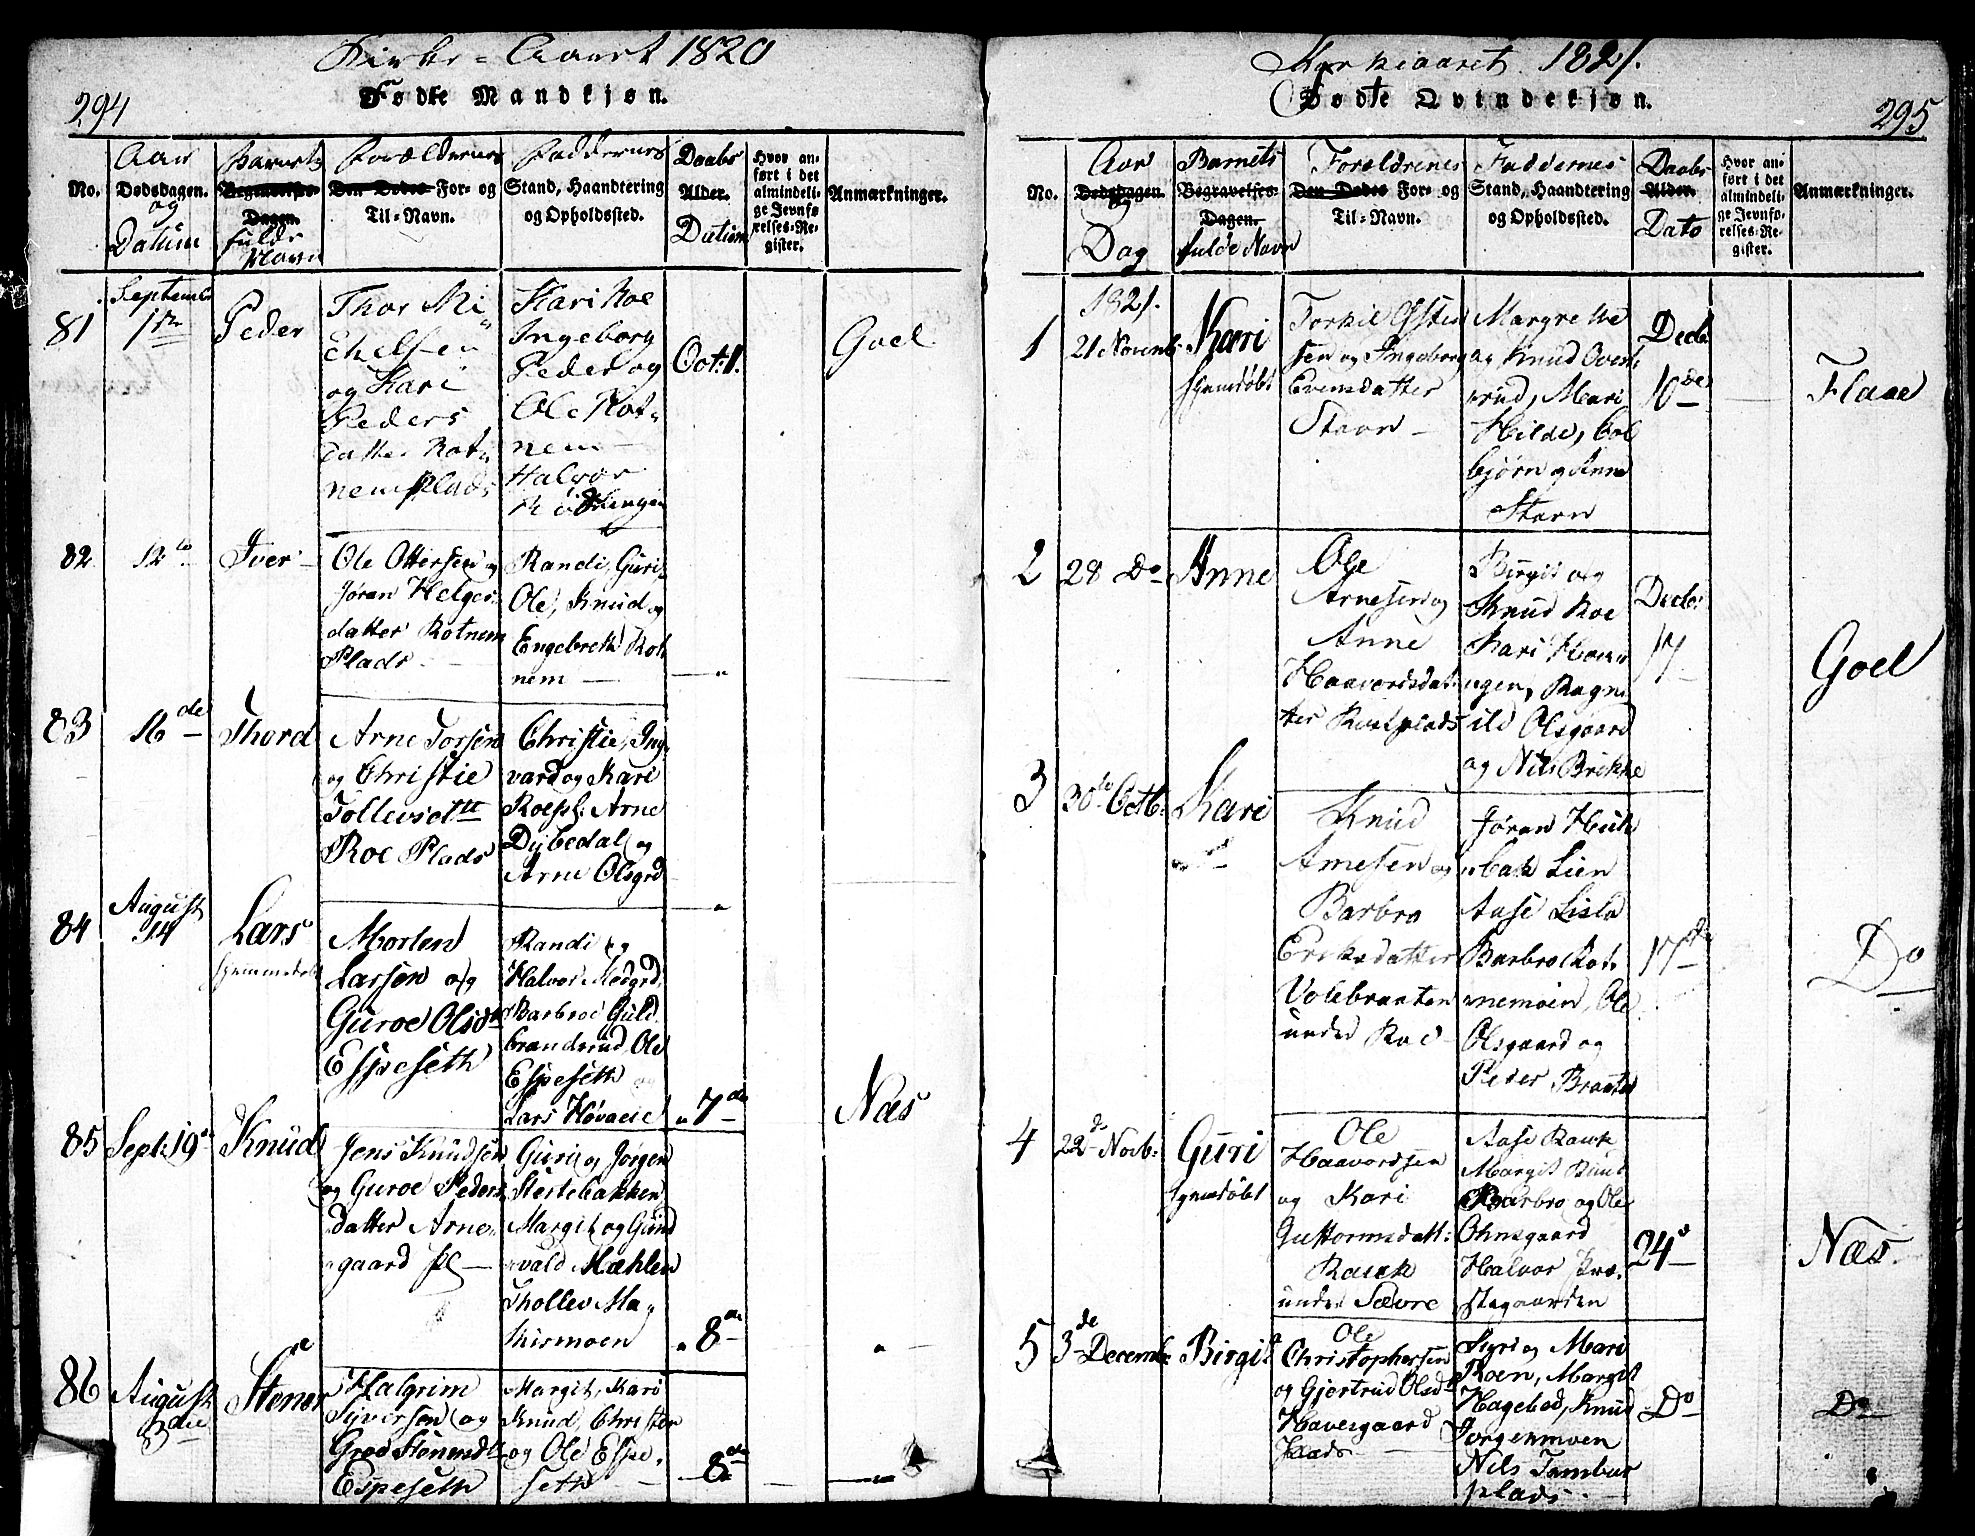 Kirke-Aaret 1820
294
Fødte Mandkjøn.
No.
Aar
Dødsdagen.
og
Datum
Barnets
Begravelses-
Dagen.
fulde
Navn
Forældrenes
Den Dødes For- og
Til-Navn.
Faddernes
Stand, Haandtering
og Opholdssted.
Daabs
Alder.
Datum
Hvor an-
ført i det
almindeli-
ge Jevnfø-
relses-Re-
gister.
Anmærkninger.
81
Septemb
1ste
Peder
Thor Mi
chelsen
og Kari
Peders
datter Rot
nem Plads
Kari Roe
Ingeborg
Peder og
Ole Rot
nem
Halvor
Oct: 1.
Goel
82
12te
Iver
Ole Ottersen og
Jøran Helges
datter Rotnem
Plads
Randi, Guri
Ole, Knud og
Engebreth Rot
nem
83
16de
Thord
Arne Torsen
og Christie
Tollevsdtt
Roe Plads
Christie, Ing
vard og Kari
Roepl: Arne
Dybedal og
Arne Olsgrd
84
August
14
Lars
hjemmedøbt
Morten
Larsen og
Guroe Olsdtt
Espeseth
Randi og
Halvor Modgrd
Barbroe Guld
brandsrud, Ole
Espeseth og
Lars Høvaeie
" 7de
Næs
85
Sept: 19de
Knud
Jens Knudsen
og Guroe Peders
datter Arne
gaard Pl
Guri og Jørgen
Stertebakken
Margit og Gund
vald Mæhlen
Thollev Ma
thismoen
" 8de
"
86
August
3die
Stener
Halgrim
Syversen og
Groe Stenersdtt
Espeseth
Margit, Kari
Knud, Christen
og Ole Espe
seth
8de
"
Kirkeaaret 1821.
295
Fødte Qvindekjøn.
No.
Aar
Dødsdagen.
og
Dag
Barnets
Begravelses-
Dagen.
fulde Navn
Foreldrenes
Den Dødes For- og
Til-Navn.
Faddernes
Stand, Haandtering
og Opholdssted.
Daabs
Alder.
Dato
Hvor an-
ført i det
almindeli-
ge Jevnfø-
relses-Re-
gister.
Anmærkninger.
1
1821.
21 Novemb
Kari
hjemdøbt
Torkil Østen
sen og Ingeborg
Evensdatter
Stavn
Margrethe
og Knud Overs
rud, Mari
Hilde, Col
bjørn og Anne
Stavn
Decb
10de
Flaae
2
28 Do
Anne
Ole
Arnesen og
Anne
Haavordsdat
ter Roeplads
Birgit og
Knud Roe
Kari Hoen
ngen, Ragn
ild Olsgaard
og Nils Brekke
Decb:
17
Goel
3
30te Octb:
Kari
Knud
Arnesen og
Barbro
Eriksdatter
Volebraaten
under Roe
Jøran Huk
bak Lien
Aase Lislo
Barbro Rot
nemoen, Ole
Olsgaard og
Peder Braaten
17de
Do
4
22de Novb:
Guri
hjemdøbt
Ole
Haavordsen
og Kari
Guttormsdatt:
Rauk
under Sævre
Aase Rauk
Margit Ruut
Barbro og Ole
Ohnsgaard
Halvor Præ
stegaarden
24de
Næs.
5
3de Decemb:
Birgit
Ole
Christophersen
og Gjertrud Olsdtt
Haversgaard
Plads
Siri og Mari
Roen, Margit
Hagebød, Knud
Jorgenmoen
Nils Tambur
plads
Do
Do